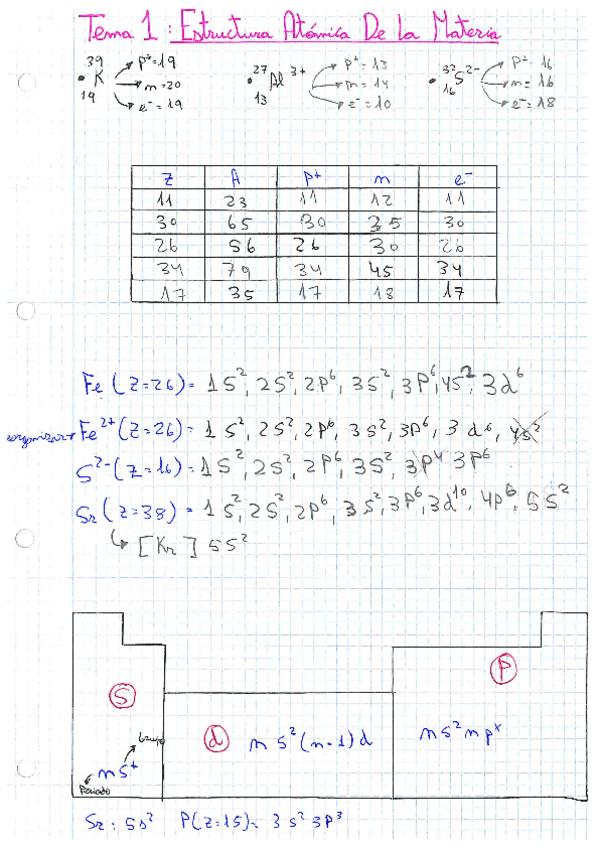 Tema 1: Estructura Atómica De La Materia
• ³⁹₁₉K → p⁺=19 → n=20 → e⁻=19
• ²⁷₁₃Al³⁺ → p⁺=13 → n=14 → e⁻=10
• ³²₁₆S²⁻ → p⁺=16 → n=16 → e⁻=18
Z A p⁺ n e⁻
11 23 11 12 11
30 65 30 35 30
26 56 26 30 26
34 79 34 45 34
17 35 17 18 17
Fe (Z=26)= 1s², 2s², 2p⁶, 3s², 3p⁶, 4s², 3d⁶
reorganizar → Fe²⁺(Z=26)= 1s², 2s², 2p⁶, 3s², 3p⁶, 3d⁶, 4s²
S²⁻(Z=16)= 1s², 2s², 2p⁶, 3s², 3p⁴ 3p⁶
Sr (Z=38)= 1s², 2s², 2p⁶, 3s², 3p⁶, 3d¹⁰, 4p⁶, 5s²
↳ [Kr] 5s²
s
p
d
ns²(n-1)d
ns²npˣ
Grupo
nsˣ
Periodo
Sr: 5s² P(Z=15)= 3s²3p³